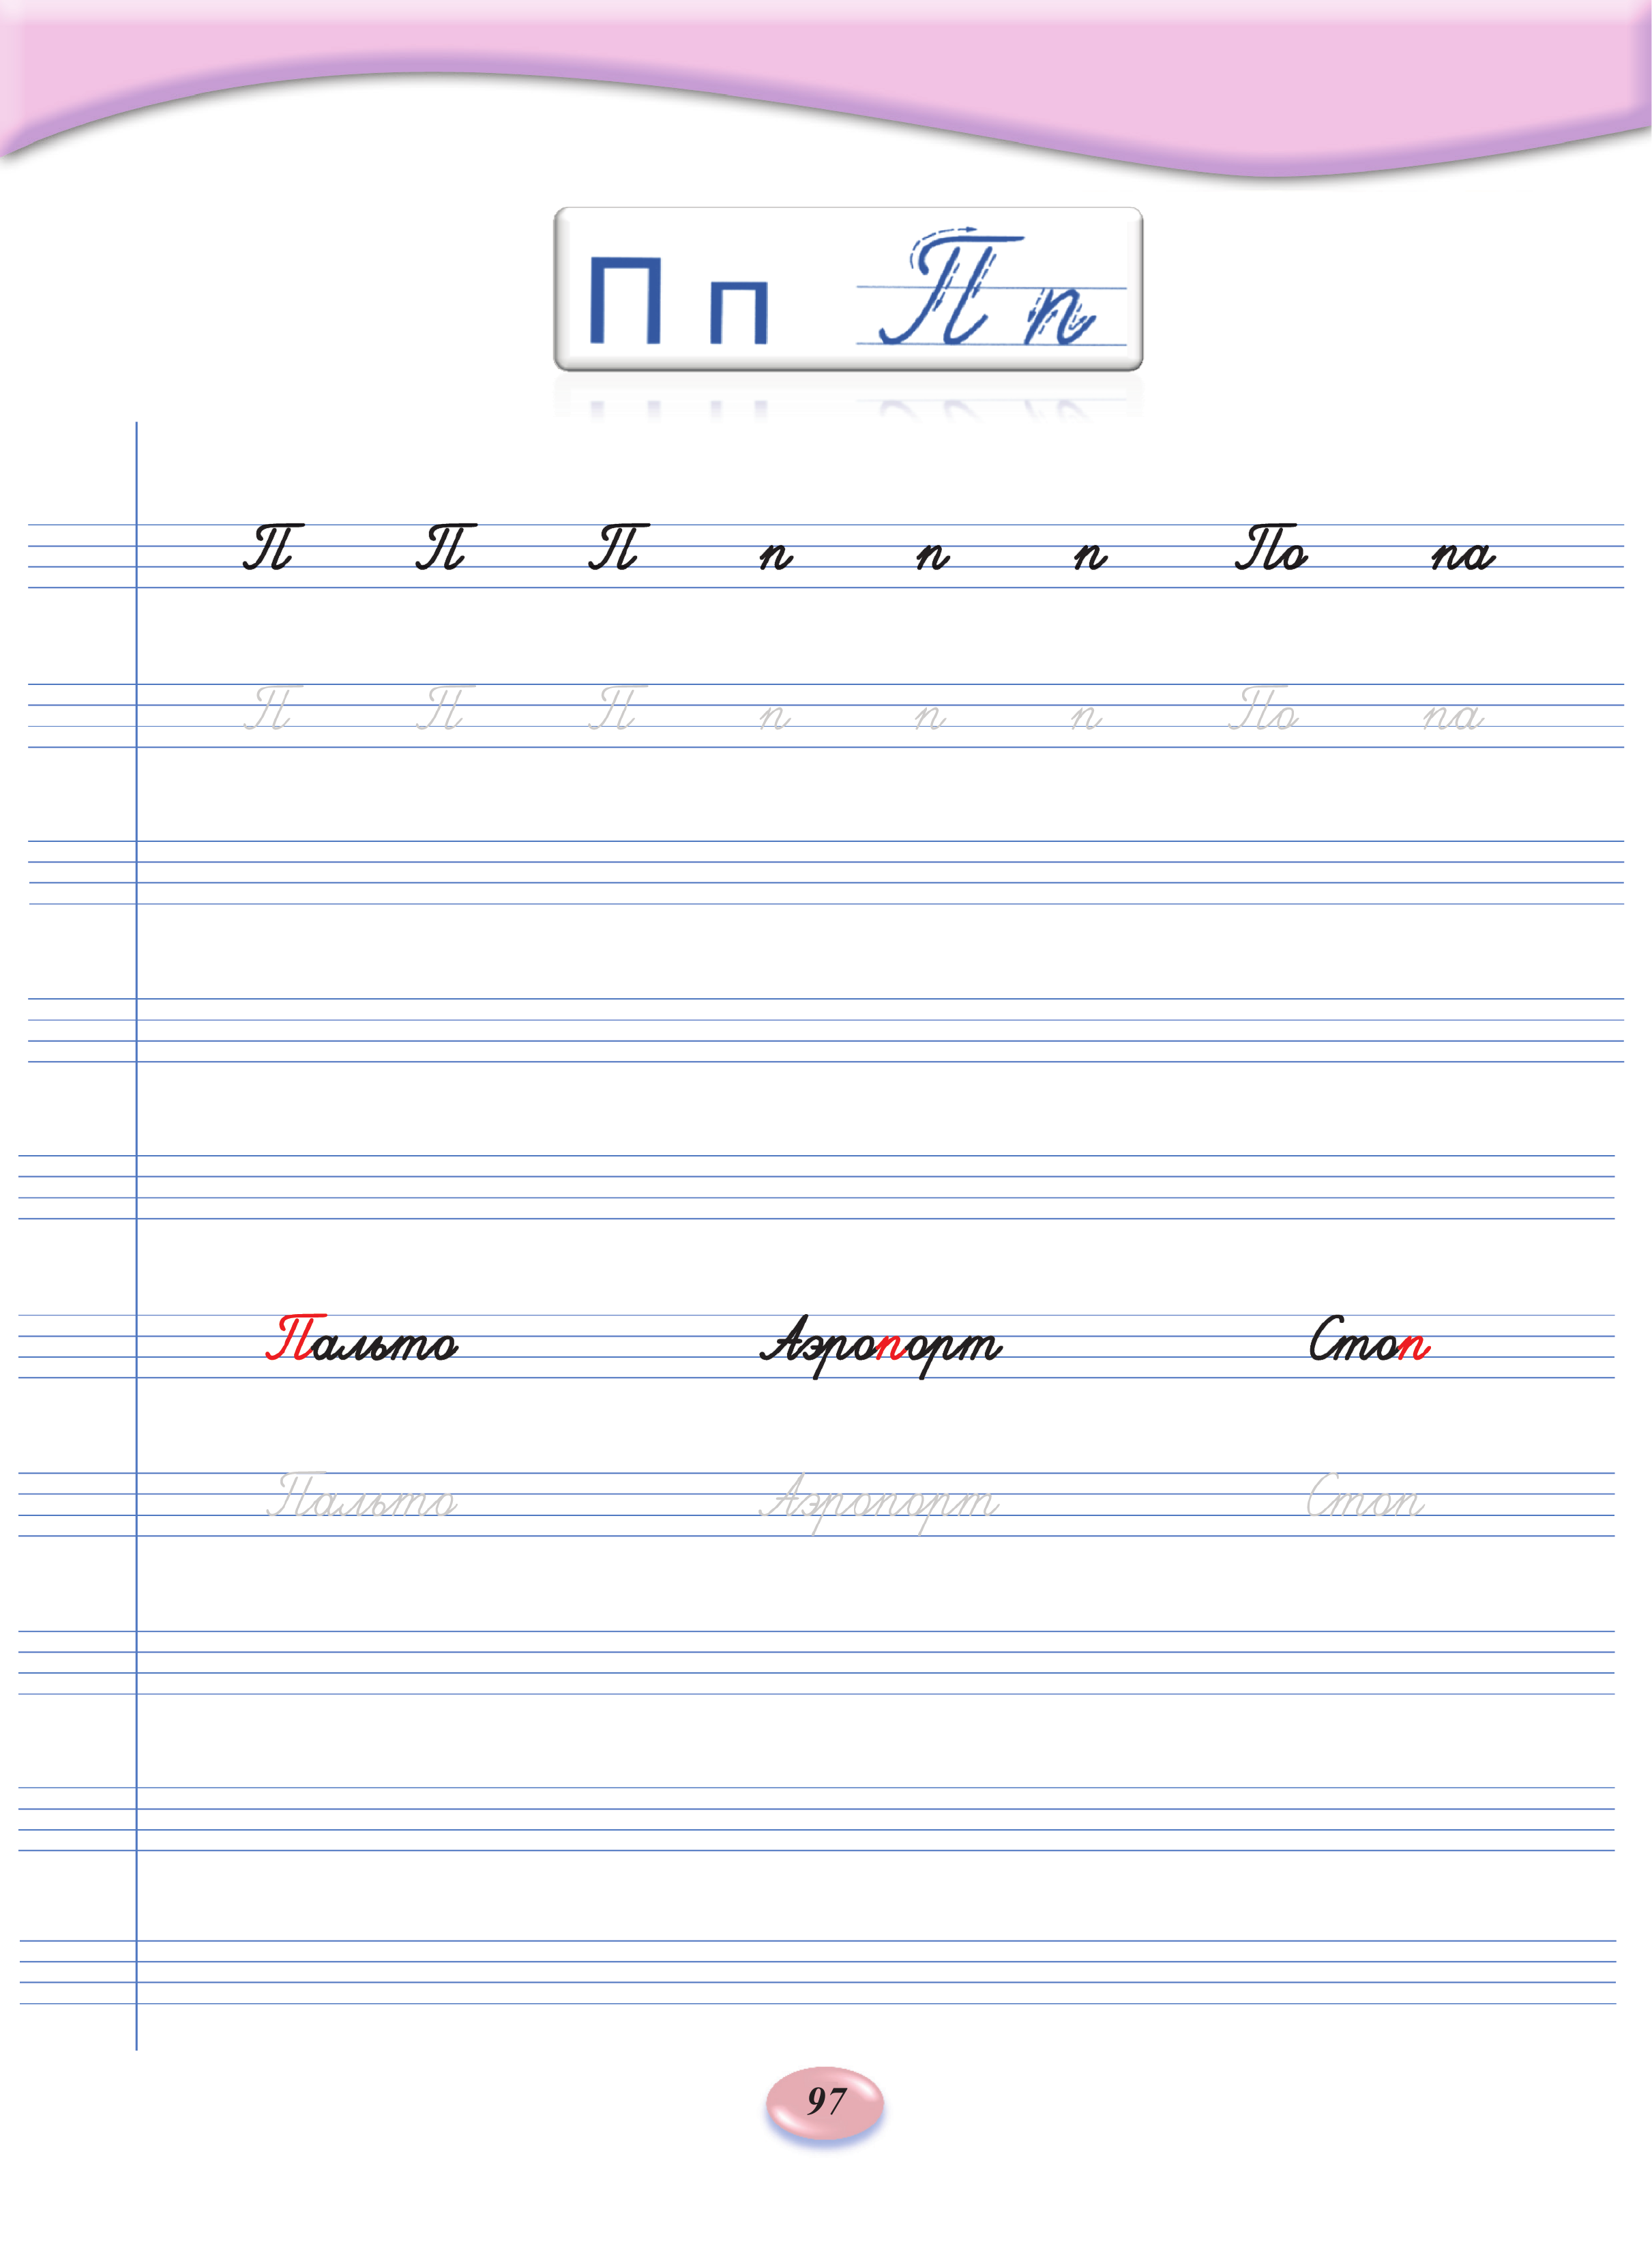 П п П п
П П П п п п По па
П П П п п п По па
Пальто Аэропорт Стоп
Пальто Аэропорт Стоп
97